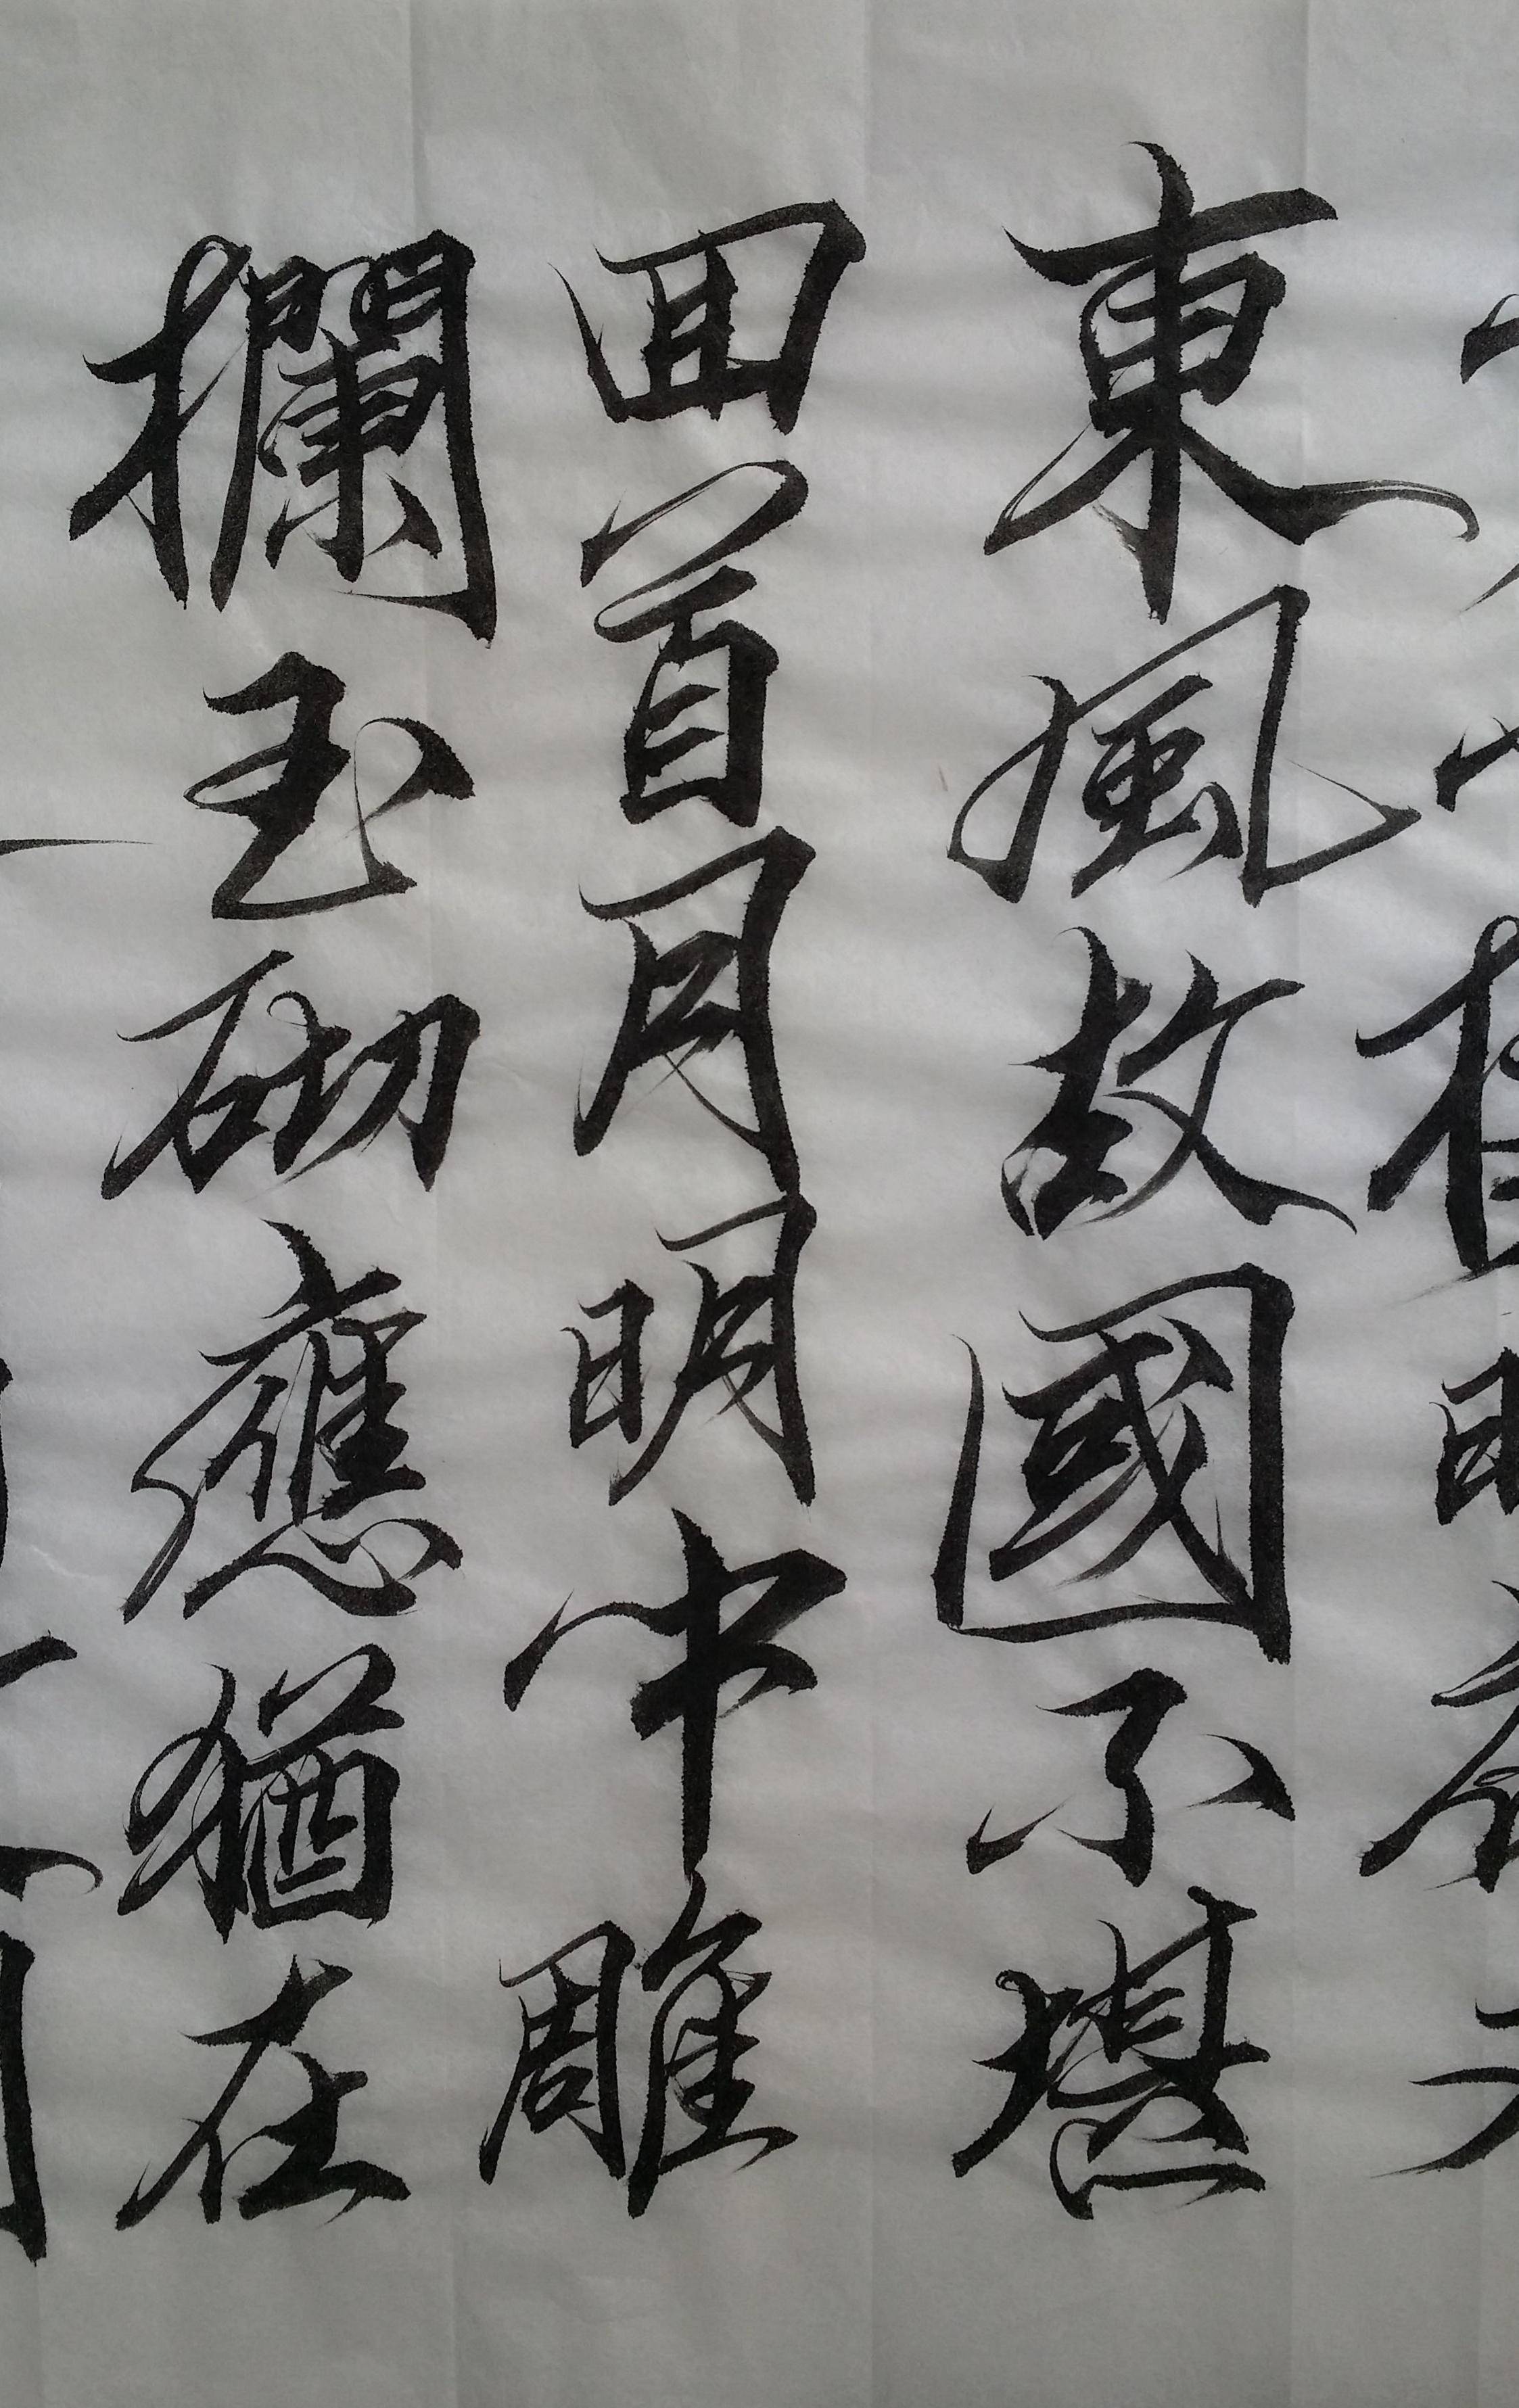 東風故國不堪
回首月明中雕
欄玉砌應猶在